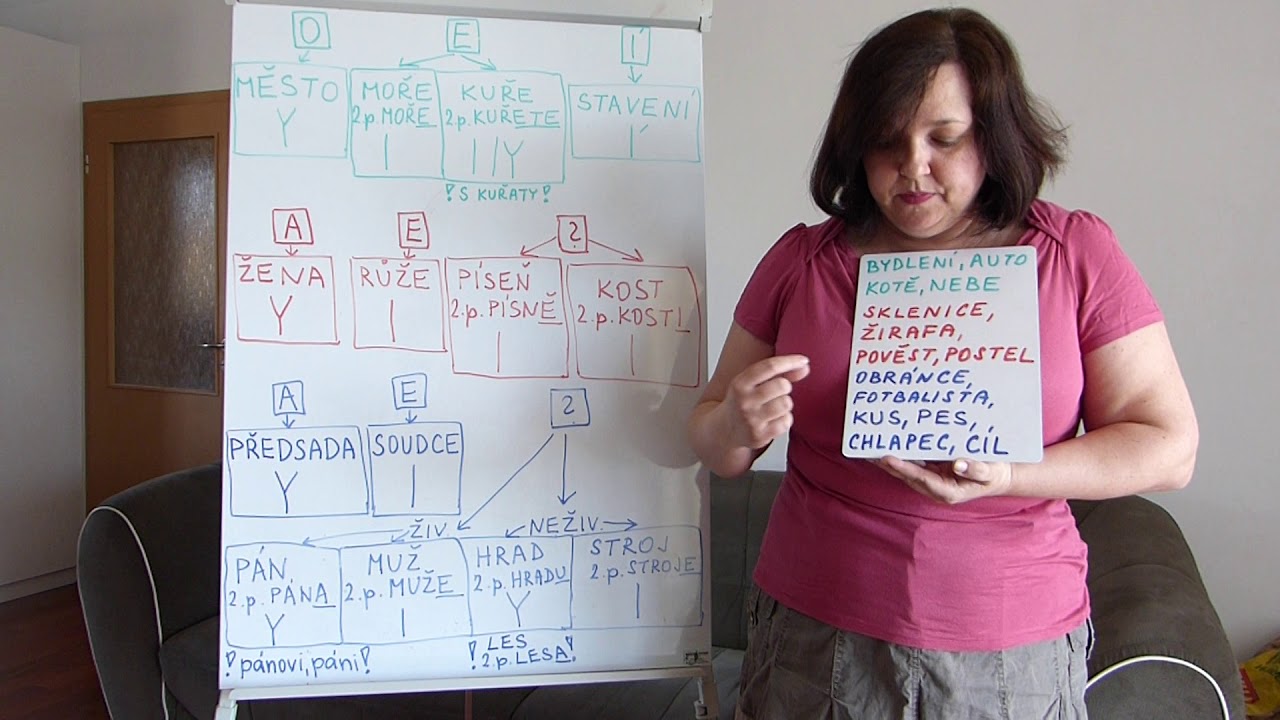 O E Í
MĚSTO MOŘE KUŘE STAVENÍ
2.p. MOŘE 2.p. KUŘETE
Y I I/Y Í
! S KUŘATY!
A E ?
ŽENA RŮŽE PÍSEŇ KOST
2.p. PÍSNĚ 2.p. KOSTI
Y I I I
A E ?
PŘEDSADA SOUDCE
Y I
ŽIV. NEŽIV.
PÁN MUŽ HRAD STROJ
2.p. PÁNA 2.p. MUŽE 2.p. HRADU 2.p. STROJE
Y I Y I
! pánovi, páni! ! LES !
2.p. LESA
BYDLENÍ, AUTO
KOTĚ, NEBE
SKLENICE,
ŽIRAFA,
POVĚST, POSTEL
OBRÁNCE,
FOTBALISTA,
KUS, PES,
CHLAPEC, CÍL